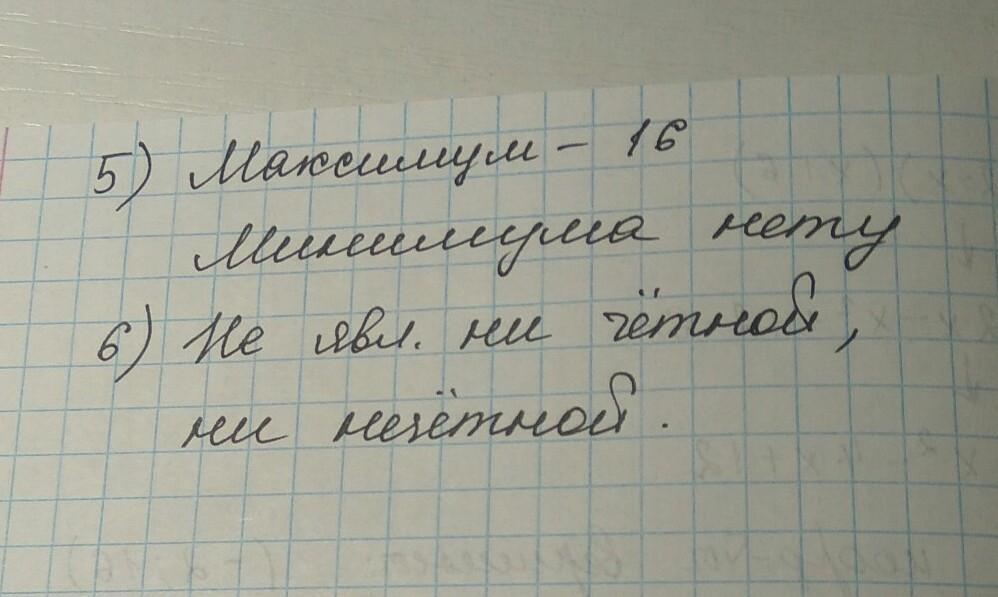 5) Максимум – 16
Минимума нету
6) Не явл. ни чётной,
ни нечётной.